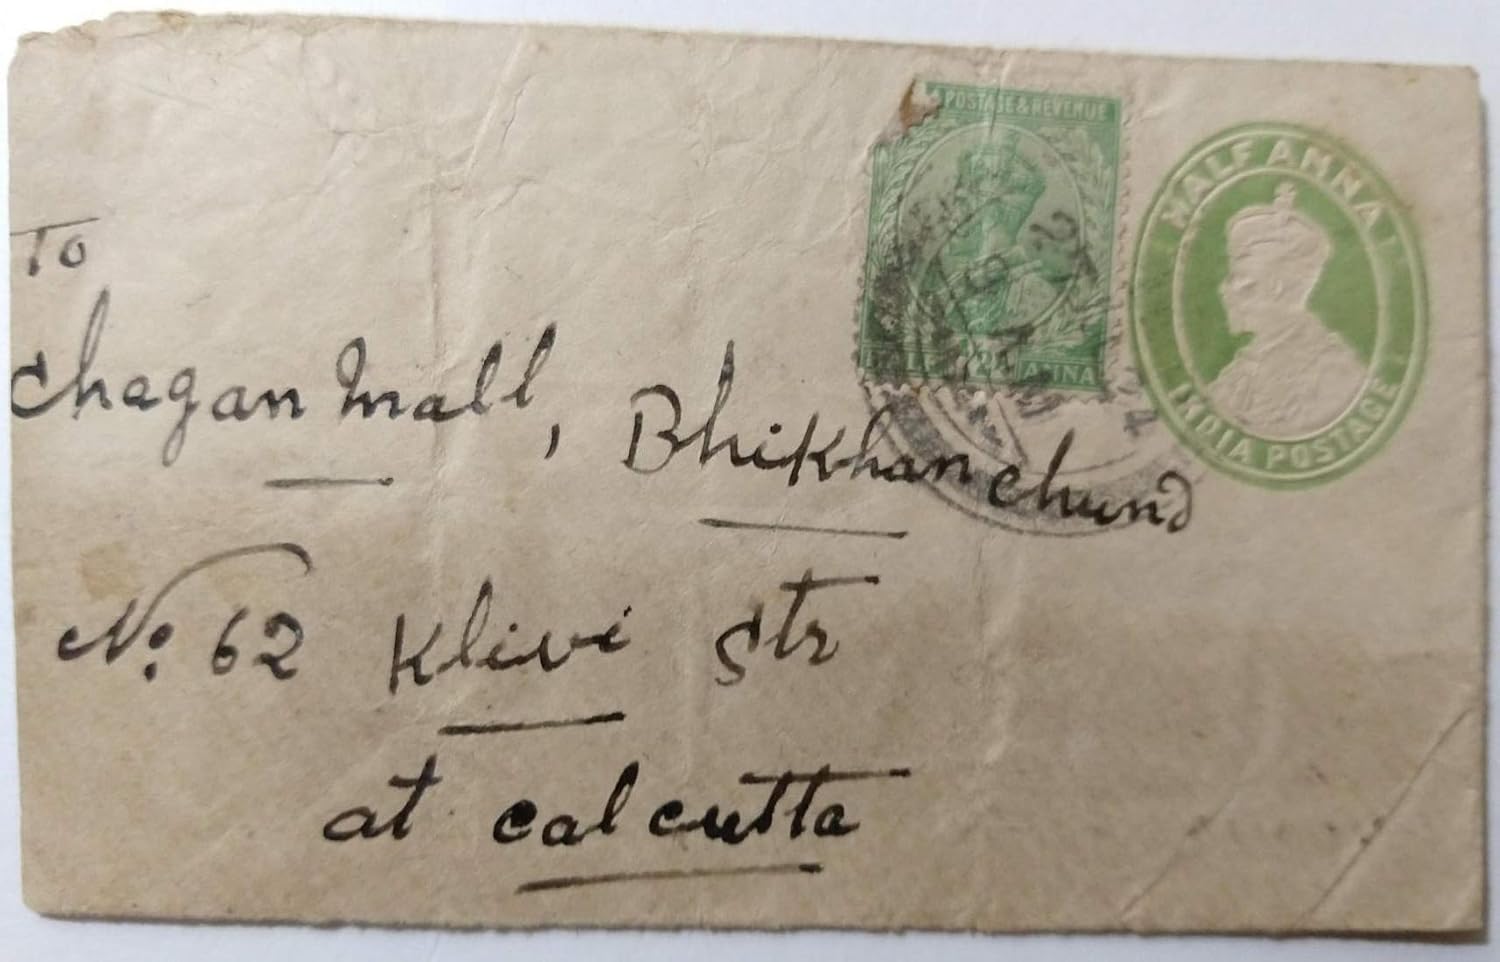 POSTAGE & REVENUE
HALF ANNA
INDIA POSTAGE
To
Chagan mall, Bhikhan chund
No: 62 Klivi Str
at calcutta